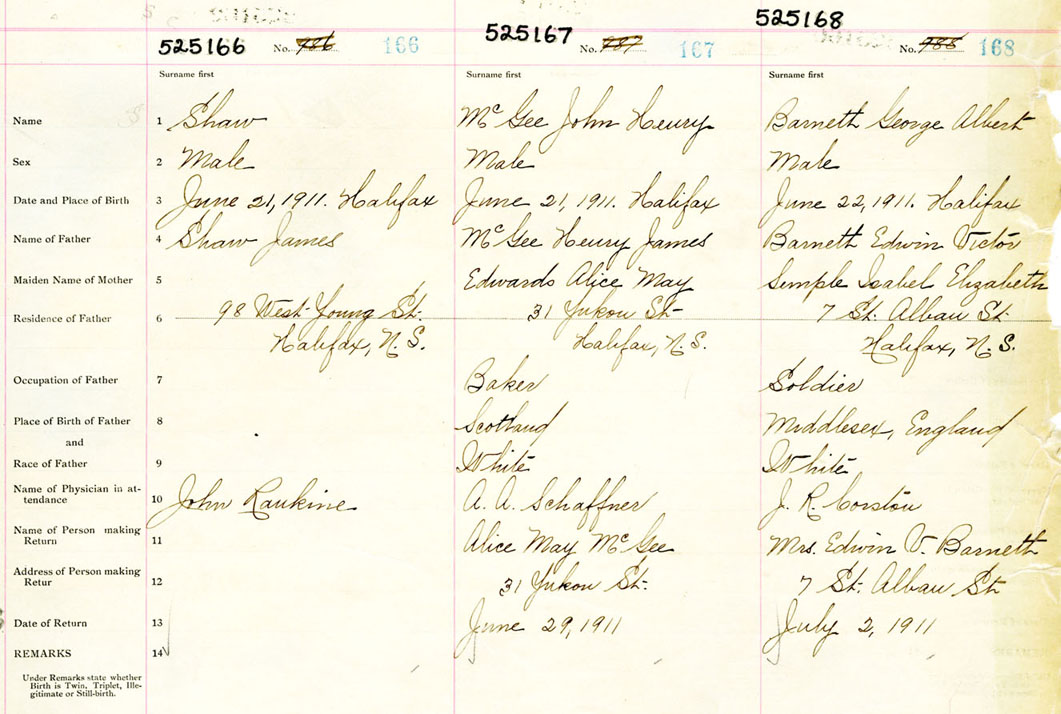 525166 No. 786 166
525167 No. 787 167
525168 No. 788 168
Surname first Surname first Surname first
Name 1 Shaw McGee John Henry Barnett George Albert
Sex 2 Male Male Male
Date and Place of Birth 3 June 21, 1911. Halifax June 21, 1911. Halifax June 22, 1911. Halifax
Name of Father 4 Shaw James McGee Henry James Barnett Edwin Victor
Maiden Name of Mother 5 Edwards Alice May Semple Isabel Elizabeth
Residence of Father 6 98 West Young St. 31 Yukon St. 7 St. Alban St.
Halifax, N.S. Halifax, N.S. Halifax, N.S.
Occupation of Father 7 Baker Soldier
Place of Birth of Father 8 Scotland Middlesex, England
and
Race of Father 9 White White
Name of Physician in at-
tendance 10 John Rankine A. A. Schaffner J. R. Corston
Name of Person making
Return 11 Alice May McGee Mrs. Edwin V. Barnett
Address of Person making
Retur 12 31 Yukon St. 7 St. Alban St.
Date of Return 13 June 29, 1911 July 2, 1911
REMARKS 14
Under Remarks state whether
Birth is Twin, Triplet, Ille-
gitimate or Still-birth.